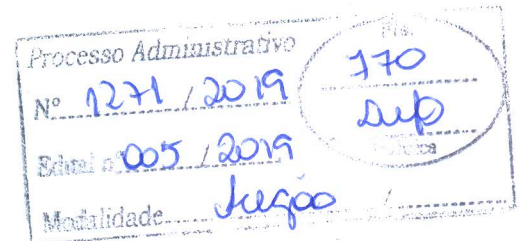 Processo Administrativo
Nº 1271 / 2019
Edital nº 005 / 2019
Modalidade Pregão /
Fls.
170
Rubrica